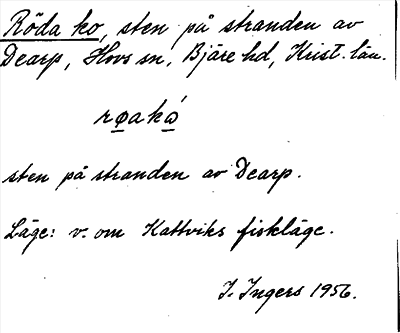 Röda ko, sten på stranden av
Dearp, Hovs sn, Bjäre hd, Krist. län.
røakɷ́
sten på stranden av Dearp.
Läge: v. om Kattviks fiskläge.
I. Ingers 1956.